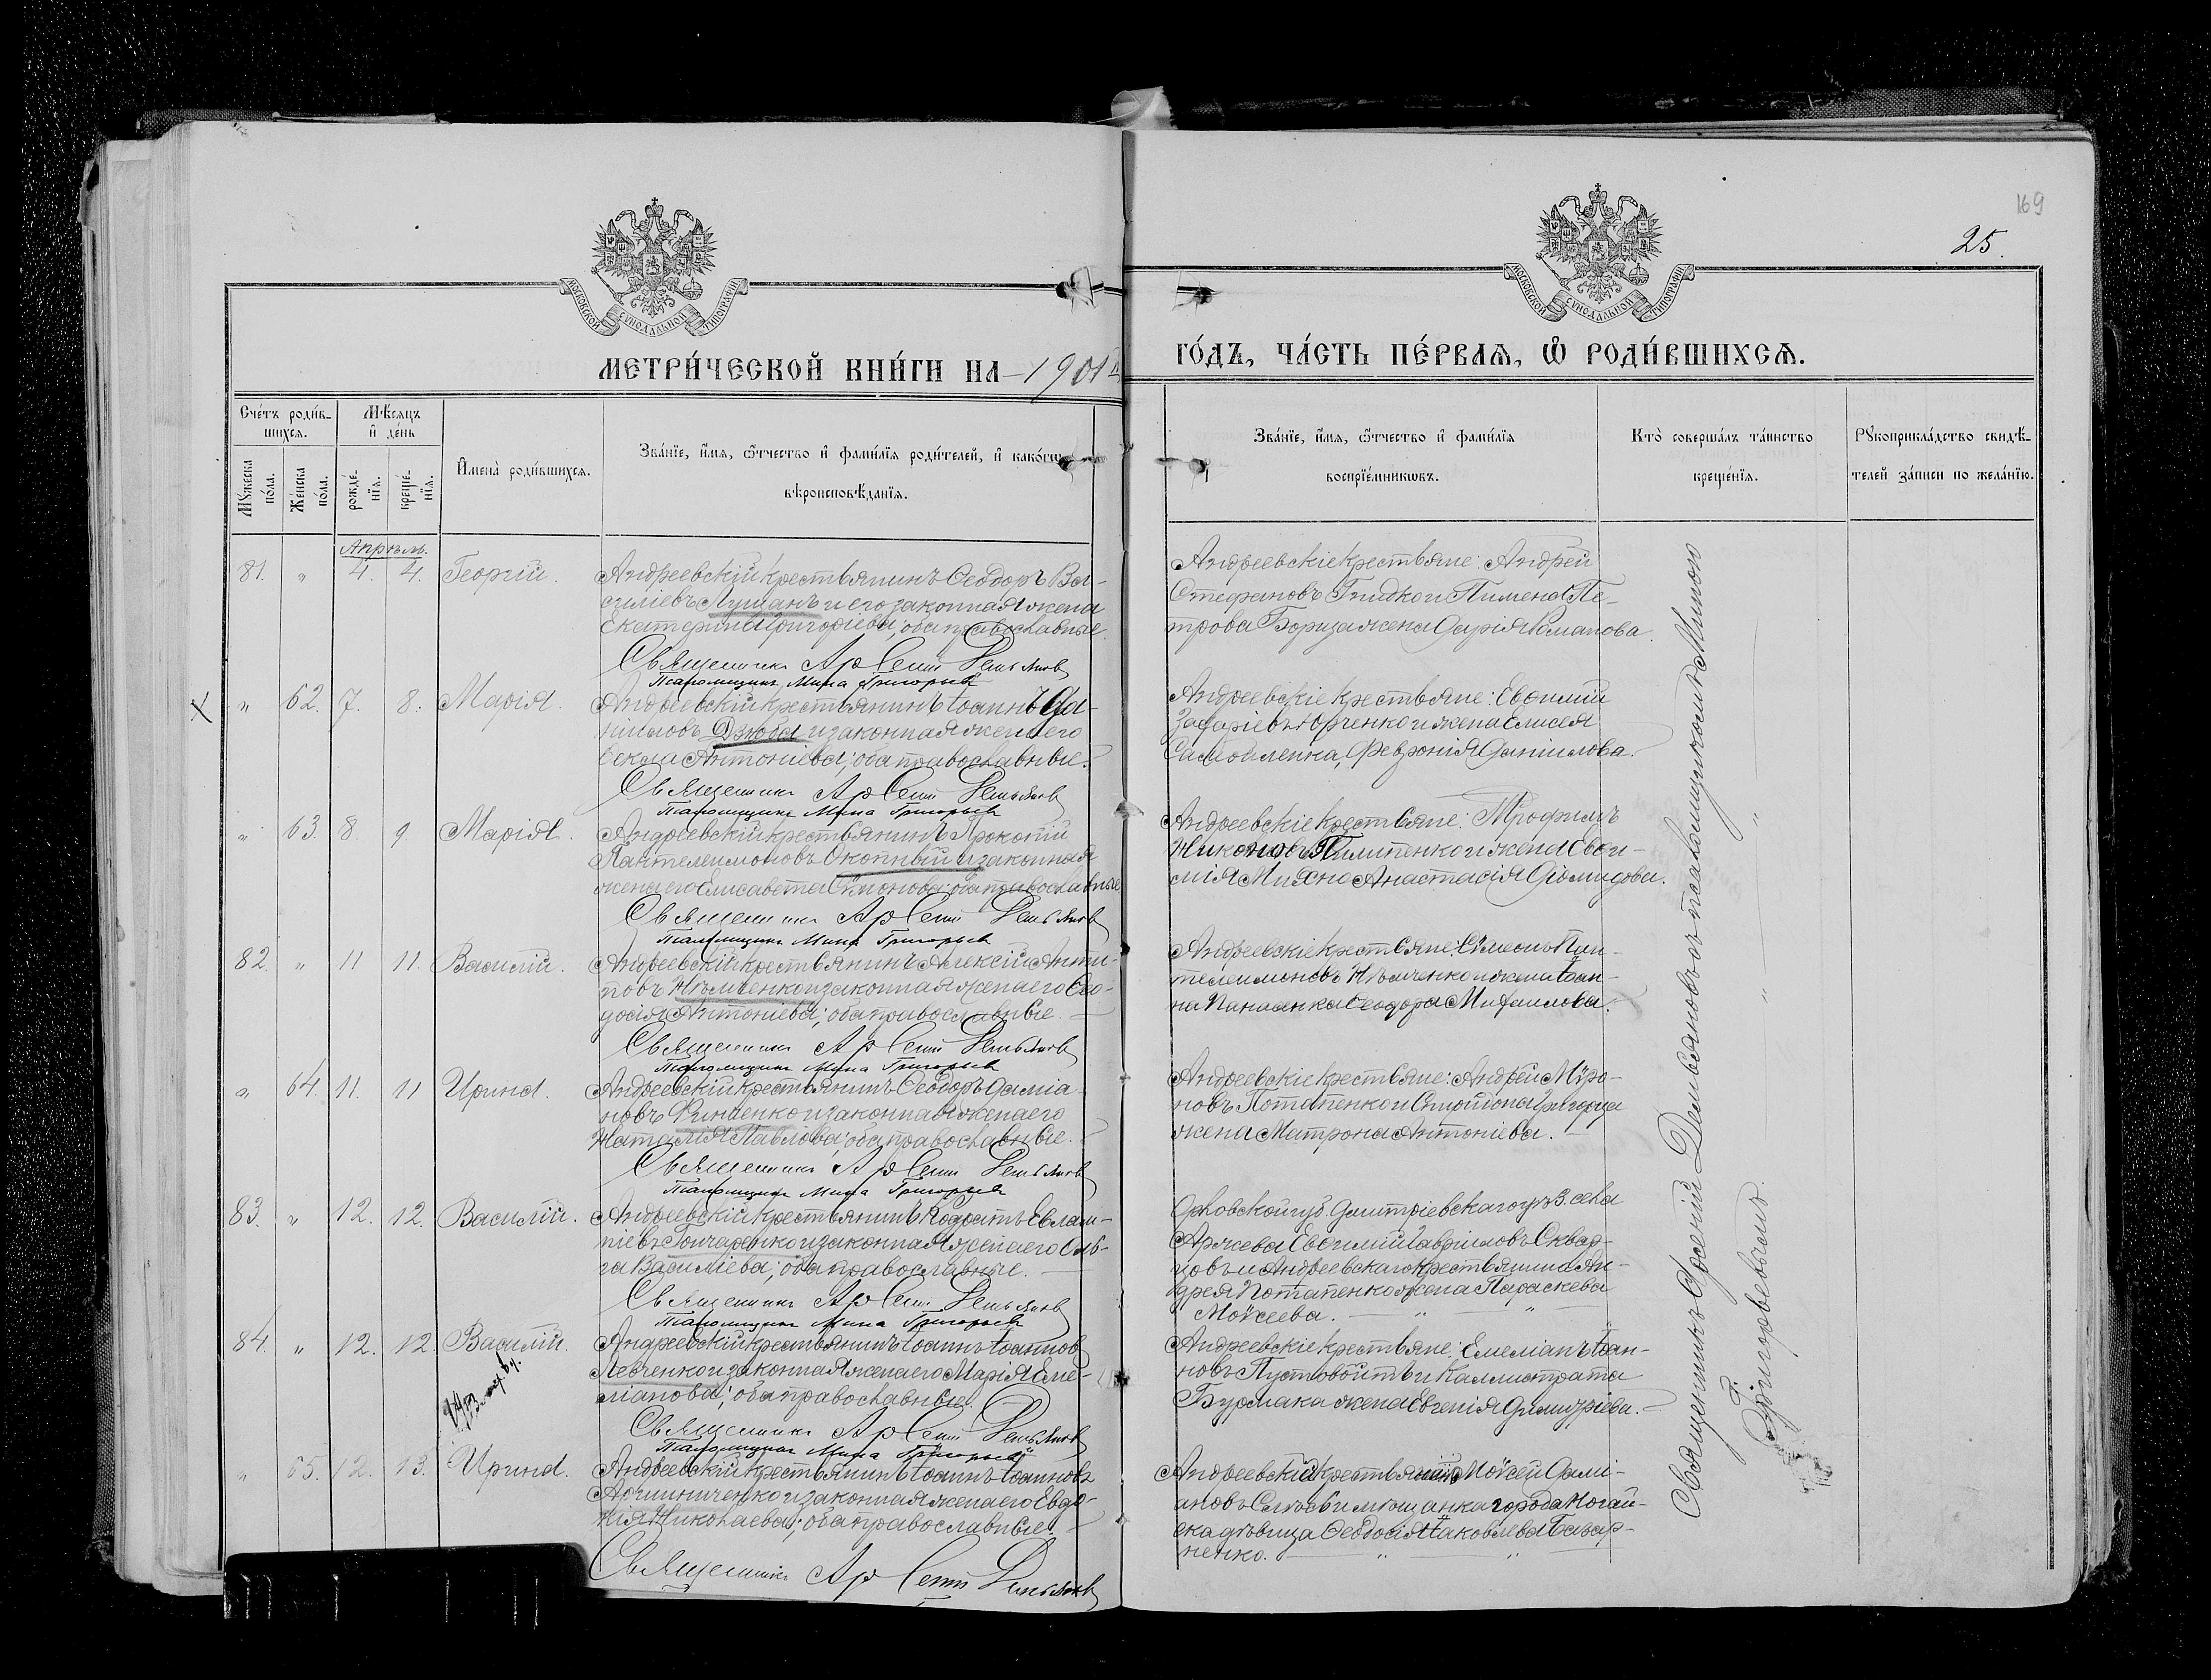 169
25.
МОСКОВСКОЙ СѴНОДАЛЬНОЙ ТИПОГРАФІИ
МОСКОВСКОЙ СѴНОДАЛЬНОЙ ТИПОГРАФІИ
МЕТРИ́ЧЕСКОЙ КНИ́ГИ НА 1901й
ГО́ДЪ, ЧА́СТЬ ПЕ́РВАѦ, Ѽ РОДИ́ВШИХСѦ.
Сче́тъ роди́в-
шихсѧ.
Мѣ́сѧцъ
и҆ де́нь
Мꙋ́жеска
по́ла.
Же́нска
по́ла.
рожде́-
нїѧ.
креще́-
нїѧ.
И҆мена̀ роди́вшихсѧ.
Зва́нїе, и҆́мѧ, ѻ҆́тчество и҆ фами́лїѧ роди́телей, и҆ како́гѡ
вѣроисповѣ́данїѧ.
Зва́нїе, и҆́мѧ, ѻ҆́тчество и҆ фами́лїѧ
воспрїе́мникѡвъ.
Кто̀ соверша́лъ та́инство
креще́нїѧ.
Рꙋкоприкла́дство свидѣ́-
телей за́писи по жела́нїю.
Апрѣль.
81. " 4. 4. Георгій.
Андреевскій крестьянинъ Ѳеодоръ Ва-
силіевъ Лушанъ и его законная жена
Екатерина Григоріева; оба православные.
Священникъ Арсеній Демьянов
Псаломщикъ Мина Григорьев
Андреевскіе крестьяне: Андрей
Стефановъ Гнидко и Пимена Пе-
трова жена Дарія Романова.
" 62. 7. 8. Марія.
Андреевскій крестьянинъ Іоаннъ Да-
ніиловъ Дзюба и законная жена его
Ѳекла Антоніева; оба православные.
Священникъ Арсеній Демьянов
Псаломщикъ Мина Григорьев
Андреевскіе крестьяне: Евѳимій
Захаріевъ Юрченко и жена Елисея
Самойленка, Февронія Даніилова.
" 63. 8. 9. Марія.
Андреевскій крестьянинъ Прокопій
Пантелеимоновъ Окопный и законная
жена его Елисавета Сѵмонова; оба православные
Священникъ Арсеній Демьянов
Псаломщикъ Мина Григорьев
Андреевскіе крестьяне: Трофимъ
Никоновъ Пилипенко и жена Евѳи-
мія Анастасія Діомидова.
82. " 11 11. Василій.
Андреевскій крестьянинъ Алексій Анти-
повъ Нѣмченко и законная жена его Ѳео-
досія Антоніева; оба православные.
Священникъ Арсеній Демьянов
Псаломщикъ Мина Григорьев
Андреевскіе крестьяне: Сѵмеонъ Пан-
телеимоновъ Нѣмченко и жена Іоан-
на Панаенка Ѳеодора Михаилова.
" 64. 11. 11 Ирина.
Андреевскій крестьянинъ Ѳеодоръ Даміа-
новъ и законная жена его
Наталія Павлова; оба православные.
Священникъ Арсеній Демьянов
Псаломщикъ Мина Григорьев
Андреевскіе крестьяне: Андрей Мѵро-
новъ Потапенко и Спиридона
жена Матрона Антоніева.
83. " 12. 12. Василій.
Андреевскій крестьянинъ Кодратъ Евлам-
піевъ Гончаренко и законная жена его Оль-
га Василіева; оба православные.
Священникъ Арсеній Демьянов
Псаломщикъ Мина Григорьев
Орловской губ. Дмитріевскаго уѣз. села
Аржева Евѳимій Гавріиловъ Сквар-
цовъ и Андреевскаго крестьянина Ан-
дрея Потапенко жена Параскева
Моѵсеева.
84. " 12. 12. Василій.
Андреевскій крестьянинъ Іоаннъ Іоаннов
Левченко и законная жена его Марія Еме-
ліанова; оба православные.
Священникъ Арсеній Демьянов
Псаломщикъ Мина Григорьев
Андреевскіе крестьяне: Емеліанъ Іоан-
новъ Пустовойтъ и Каллистрата
Бурлака жена Евгенія Димитріева.
" 65. 12. 13. Ирина.
Андреевскій крестьянинъ Іоаннъ Іоанновъ
и законная жена его Евдо-
кія Николаева; оба православные.
Священникъ Арсеній Демьянов
Андреевскій крестьянинъ Моѵсей Дамі-
ановъ и мѣщанка города Ногай-
ска дѣвица Ѳеодосія Іаковлева Базар-
ненко.
Священникъ Арсеній Демьяновъ съ псаломщикомъ Миною
Григорьевымъ.